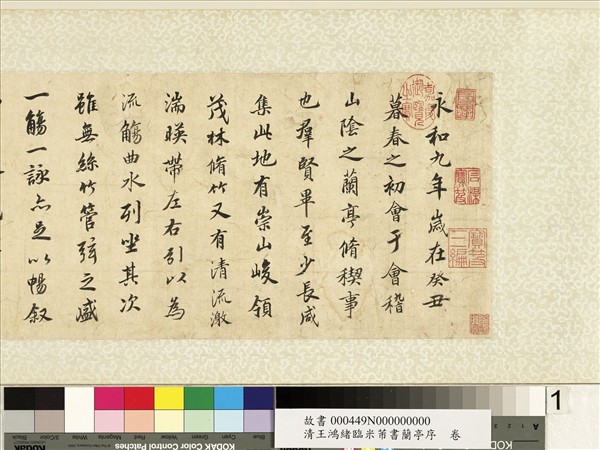 永和九年歲在癸丑
暮春之初會于會稽
山陰之蘭亭脩稧事
也羣賢畢至少長咸
集此地有崇山峻領
茂林脩竹又有清流激
湍暎帶左右引以為
流觴曲水列坐其次
雖無絲竹管弦之盛
一觴一詠亦足以暢敘
嘉慶御覽之寶
寶笈三編
1
故書 000449N000000000
清王鴻緒臨米芾書蘭亭序 卷
KODAK Color Control Patches
Blue Cyan Green Yellow Red Magenta White 3/Color Black
Kodak